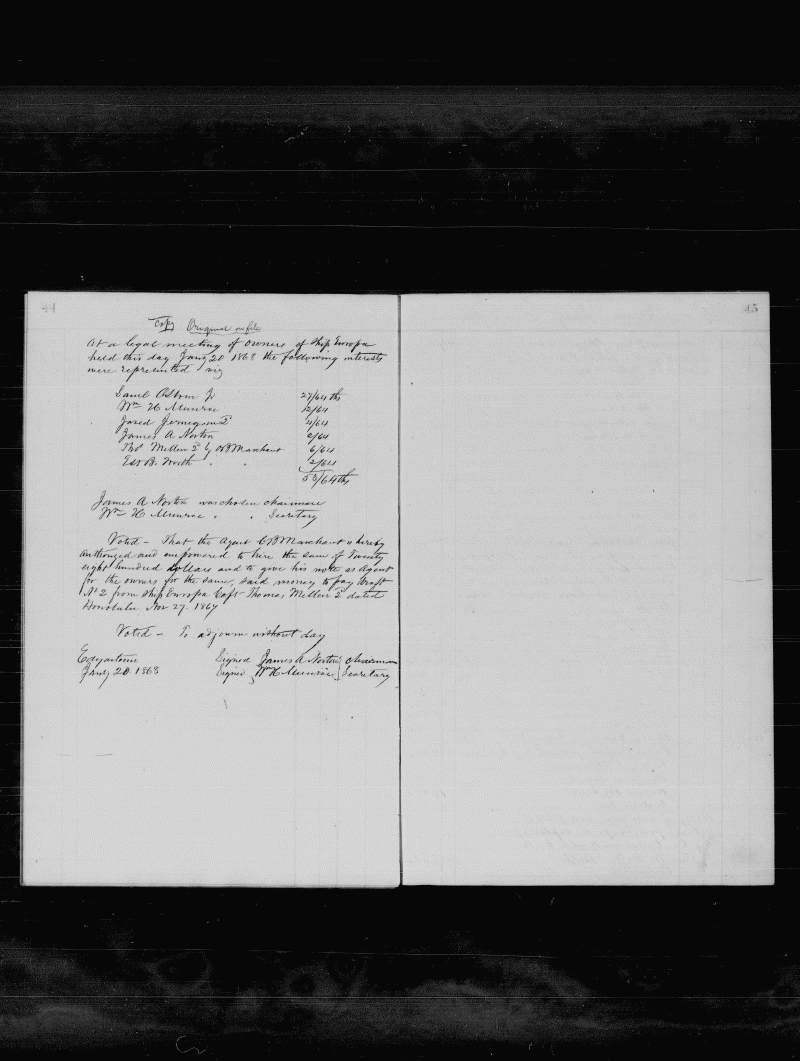 44
45
Copy Original on file
At a legal meeting of owners of Ship Europa
held this day Jany 20 1868 the following interests
were represented viz
Saml Osborn Jr 27/64ths
Wm H Munroe 12/64
Jared Jernegan 2d 4/64
James A Norton 2/64
Thos Mellen 2d by CB Marchant 6/64
Edw B. North " " 2/64
53/64ths
James A Norton was chosen chairman
Wm H Munroe " " Secretary
Voted - That the Agent CB Marchant is hereby
authorized and empowered to hire the sum of Twenty
eight hundred dollars and to give his note as Agent
for the owners for the same, said money to pay draft
No 2 from Ship Europa Capt Thomas Mellen 2d dated
Honolulu Nov 27. 1867
Voted - To adjourn without day
Edgartown Signed James A Norton chairman
Jany 20 1868 Signed Wm H Munroe Secretary